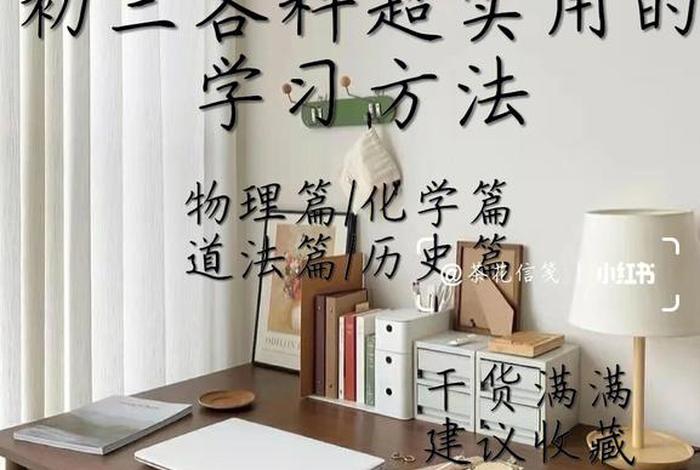 初三各科超实用的
学习方法
物理篇/化学篇
道法篇/历史篇
@茶花信笺 小红书
ODILON REDON
干货满满
建议收藏